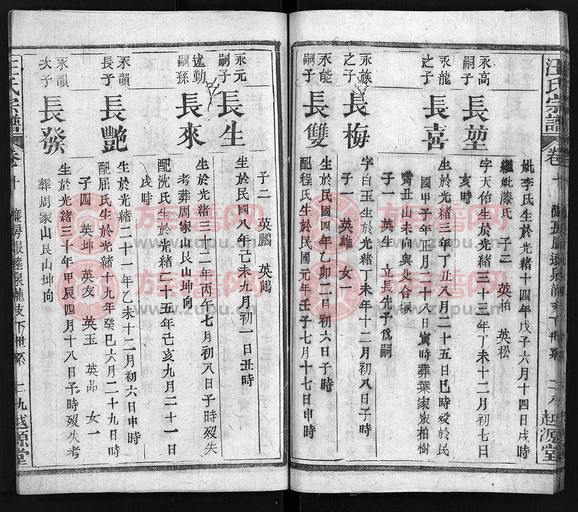 汪氏宗譜
卷十
越源堂
妣李氏生於光緒十四年戊子六月十四日戌時
繼妣滕氏 子二 英柏 英松
永高之子
長堃
字天佑生於光緒三十三年丁未十二月初七日
亥時
永龍之子
長喜
生於光緒三年丁丑八月二十五日巳時歿於民
國甲子年正月二十八日寅時葬葉家嶺柏樹
灣丑山未向與父合槨
英生 立長先子為嗣
永蔟之子
長梅
字白玉生於光緒丁未年十二月初八日子時
子一 英雄 女一
永能嗣子
長雙
生於民國四年乙卯二月初六日子時
配程氏生於民國元年壬子七月十七日申時
子二 英鵬 英鴻
永元嗣子
長生
生於民國八年己未九月初一日丑時
述勤嗣孫
長來
生於光緒三十二年丙午七月初八日子時歿失
考葬周家山艮山坤向
配沈氏生於光緒二十五年己亥九月二十一日
戌時
永韻長子
長艷
生於光緒二十一年乙未十二月初六日申時
配屈氏生於光緒十九年癸巳六月二十九日時
子四 英坤 英友 英玉 英品 女一
永韻次子
長發
生於光緒三十年甲辰四月十八日子時歿失考
葬周家山艮山坤向
汪氏宗譜
卷十
下世系
七九
越源堂
族譜網
www.zupu.cn
族譜網
www.zupu.cn